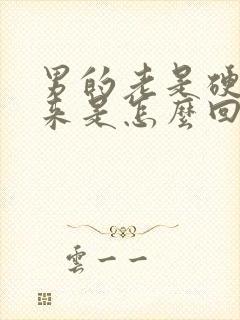 男的老是硬
来是怎麼回
雲一一